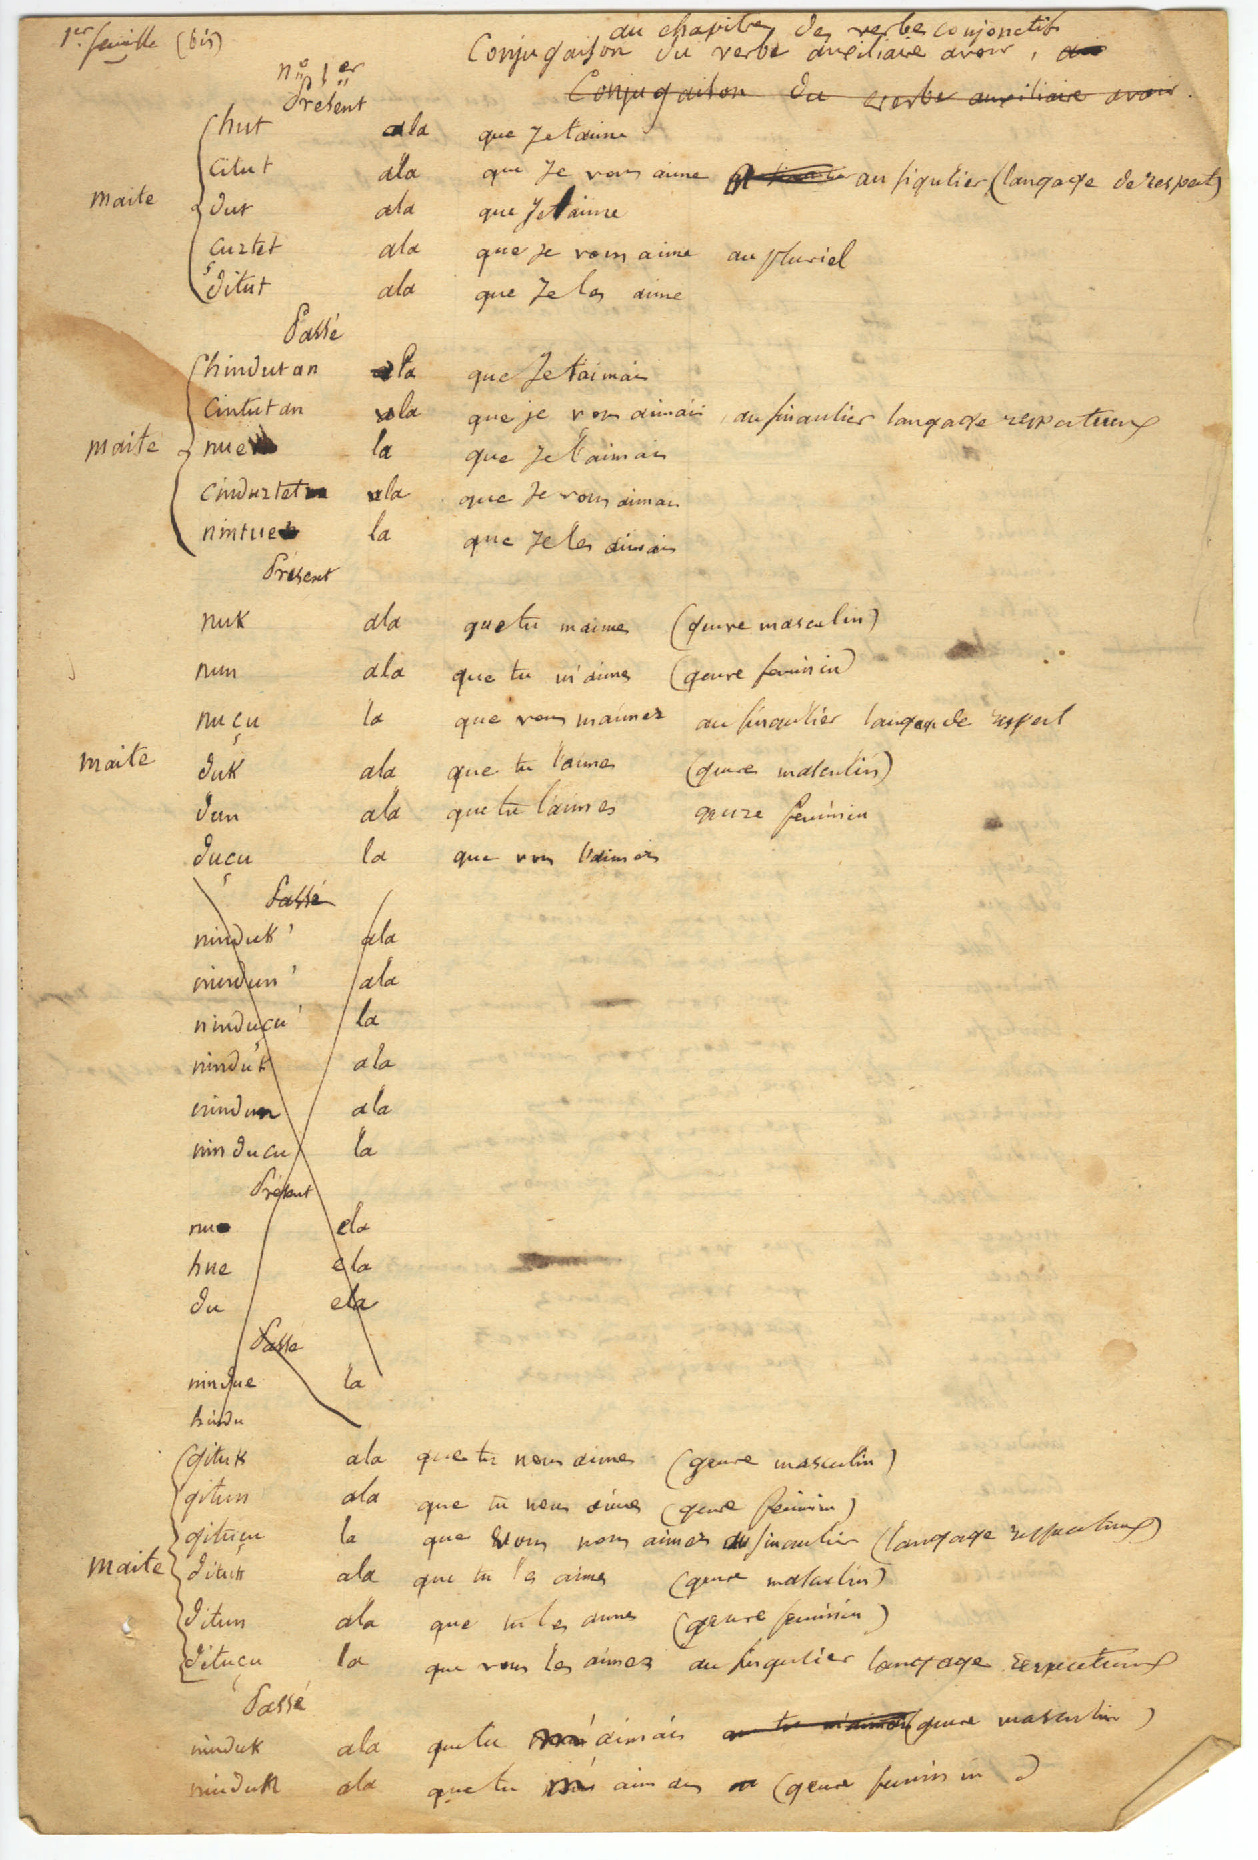 1er feuille (bis)
du chapitre des verbes conjonctifs
Conjugaison du verbe auxiliaire avoir,
no 1er
Conjugaison du verbe auxiliaire avoir.
Présent
hut ala que Je t'aime
citut ala que Je vous aime au sigulier (langage de respect)
maite
dut ala que Je l'aime
cuztet ala que Je vous aime au pluriel
ditut ala que Je les aime
Passé
hindutan ala que Je t'aimais
cintutan ala que je vous aimais au singulier langage respectueux
maite nue la que Je l'aimais
cinduztet ala que Je vous aimais
nintue la que Je les aimais
Présent
nuk ala que tu m'aimes (genre masculin)
nun ala que tu m'aimes (genre feminin)
nuçu la que vous m'aimez au singulier langage de respect
maite duk ala que tu l'aimes (genre masculin)
dun ala que tu l'aimes genre feminin
duçu la que vous l'aimez
Passé
ninduk ala
nindun ala
ninduçu la
ninduk ala
nindun ala
ninducu la
Présent
nu ela
hue ela
du ela
Passé
nindue la
hindu
gituk ala que tu nous aimes (genre masculin)
gitun ala que tu nous aimes (genre feminin)
gituçu la que vous nous aimez au singulier (langage respectueux)
maite dituk ala que tu les aimes (genre masculin)
ditun ala que tu les aimes (genre feminin)
dituçu la que vous les aimez au singulier langage respectueux
Passé
ninduk ala que tu m'aimais (genre masculin)
ninduk ala que tu m'aimais (genre feminin)